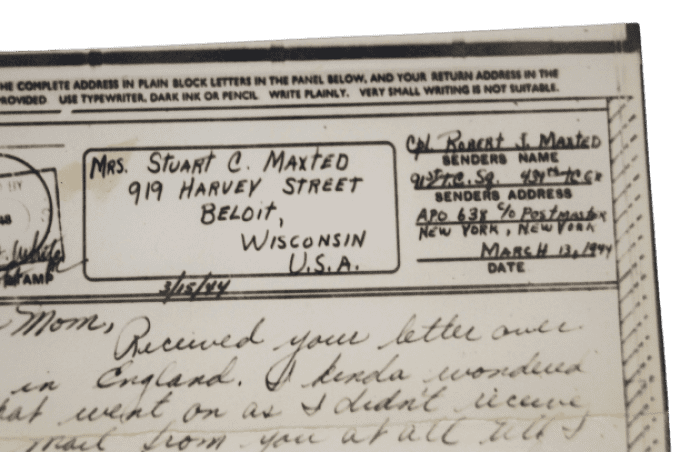 HE COMPLETE ADDRESS IN PLAIN BLOCK LETTERS IN THE PANEL BELOW, AND YOUR RETURN ADDRESS IN THE
ROVIDED USE TYPEWRITER, DARK INK OR PENCIL WRITE PLAINLY. VERY SMALL WRITING IS NOT SUITABLE.
MRS. STUART C. MAXTED
919 HARVEY STREET
BELOIT,
WISCONSIN
U.S.A.
Cpl. ROBERT J. MAXTED
SENDERS NAME
91ST T.C. Sq. 439th TC
SENDERS ADDRESS
APO 638 C/O Postmaster
NEW YORK, NEW YORK
MARCH 13, 1944
DATE
3/15/44
Mom,
Received your letter over
in England. I kinda wondered
hat went on as I didn't receive
mail from you at all till I